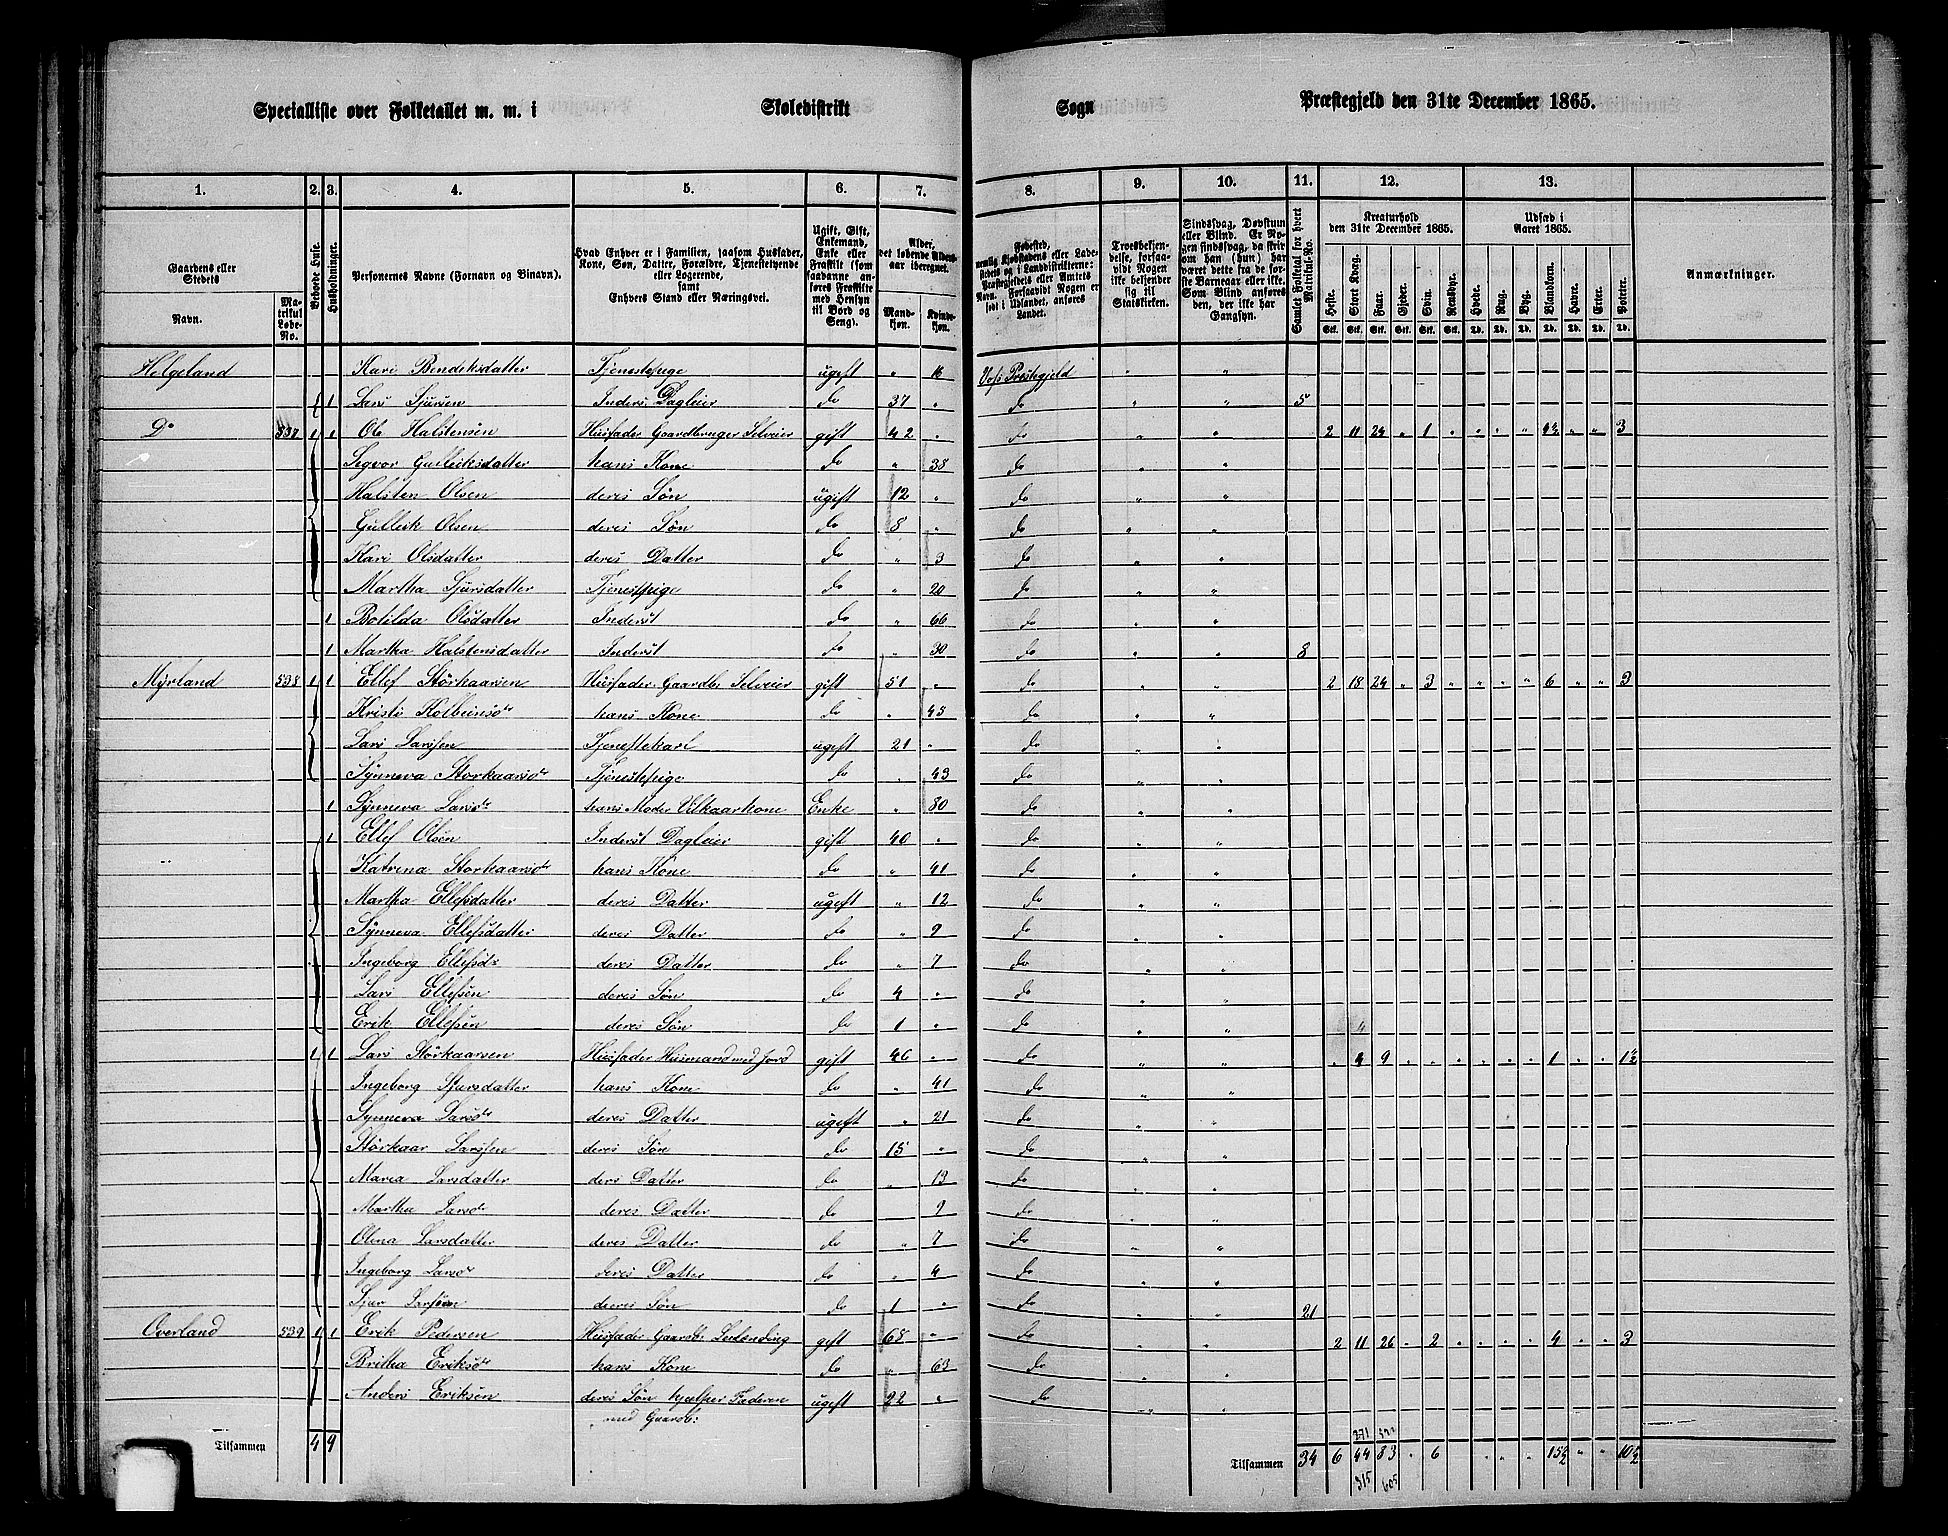 Specialliste over Folketallet m. m. i Skoledistrikt Sogn Præstegjeld den 31te December 1865.
1. 2. 3. 4. 5. 6. 7. 8. 9. 10. 11. 12. 13.
Gaardens eller Stedets Navn. Matrikul Løbe-No. Beboede Huse. Husholdninger. Personernes Navne (Fornavn og Tilnavn). Hvad Enhver er i Familien, saasom Husfader, Kone, Søn, Datter, Forældre, Tjenestetyende eller Logerende, samt Enhvers Stand eller Næringsvei. Ugift, Gift, Enkemand, Enke eller Fraskilt (som saadanne anføres Fraskilte med Hensyn til Bord og Seng). Alder, det løbende Aldersaar iberegnet. Mandkjøn. Kvindekjøn.
Troesbekjendelse, forsaavidt Nogen ikke bekjender sig til Statskirken. Samlet Folketal for hvert Matrikul-No. Kreaturhold den 31te December 1865. Udsæd i Aaret 1865. Anmærkninger.
Heste. Stort Kvæg. Faar. Gjeder. Svin. Rensdyr. Hvede. Rug. Byg. Blandkorn. Havre. Erter. Poteter.
Helgeland Kari Bendeksdatter Tjenestepige ugift " 16 Vofs Prestegjeld " "
1 Lars Sjursen Inders. Dagleier do 37 " do " " 5
Do 537 1 1 Ole Halstensen Husfader Gaardbruger Selveier gift 42 " do " " 2 11 24 " 1 " " " " " " 3
Segvor Gullecksdatter hans Kone do " 38 do " "
Halsten Olsen deres Søn ugift 12 " do " "
Gulleik Olsen deres Søn do 8 " do " "
Kari Olsdatter deres Datter do " 3 do " "
Martha Sjursdatter Tjenestpige do " 20 do " "
1 Botilda Olsdatter Inderst do " 66 do " "
1 Martha Halstensdatter Inderst do " 30 do " " 8
Myrland 538 1 1 Ellef Störkaarsen Husfader Gaardb. Selveier gift 51 " do " " 2 18 24 " 3 " " " " 6 " " 3
Kristi Kolbeinsdr hans Kone do " 45 do " "
Lars Larssen Tjenestekarl ugift 21 " do " "
Synneva Storkaarsdr Tjenestepige do " 43 do " "
1 Synneva Larsdr hans Moder Vilkaarkone Enke " 80 do " "
1 Ellef Olsen Inderst Dagleier gift 40 " do " "
Katrena Storkaarsdr hans Kone do " 41 do " "
Martha Ellefsdatter deres Datter ugeft " 12 do " "
Synneva Ellefsdatter deres Datter do " 9 do " "
Ingeborg Ellefsdr deres Datter do " 7 do " "
Lars Ellefsen deres Søn do 4 " do " "
Erik Ellefsen deres Søn do 1 " do " "
1 1 Lars Störkaarsen Husfader Husmand med Jord gift 46 " do " " " 4 9 " " " " " " 1 " " 1½
Ingeborg Sjursdatter hans Kone do " 41 do " "
Synneva Larsdr deres Datter ugift " 21 do " "
Störkaar Larssen deres Søn do 15 " do " "
Maria Larsdatter ders Datter do " 13 do " "
Martha Larsdr deres Datter do " 9 do " "
Olena Larsdatter deres Datter do " 7 do " "
Ingeborg Larsdr deres Datter do " 4 do " "
Sjur Larssen deres Søn do 1 " do " " 21
Overland 539 1 1 Erik Pedersen Husfader Gaardb. Leilænding gift 68 " do " " 2 11 26 " 2 " " " " 4 " " 3
Britha Eriksdr hans Kone do " 63 do " "
Anders Eriksen deres Søn hjælper Faderen ugift 22 " do " "
med Gaardb:
Tilsammen 4 9 Tilsammen 34 6 44 83 " 6 " " " 15½ " " 10½
315 605